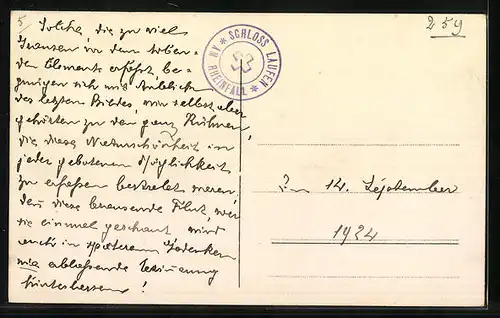 5
259
Solche, die zu viel
Grausen vor dem toben-
den Elemente erfaßt, be-
gnügen sich mit Anblicken
des letzten Bildes, wir selbst aber
gehörten zu den ganz Kühnen,
die diese Naturschönheit in
jeder gebotenen Möglichkeit
zu erfassen bestrebt waren,
denn diese brausende Flut, wer
sie einmal geschaut wird
auch in späterem Gedenken
nie ablassende Erinnerung
hinterlassen!
SCHLOSS LAUFEN
AM RHEINFALL
14. September
1924